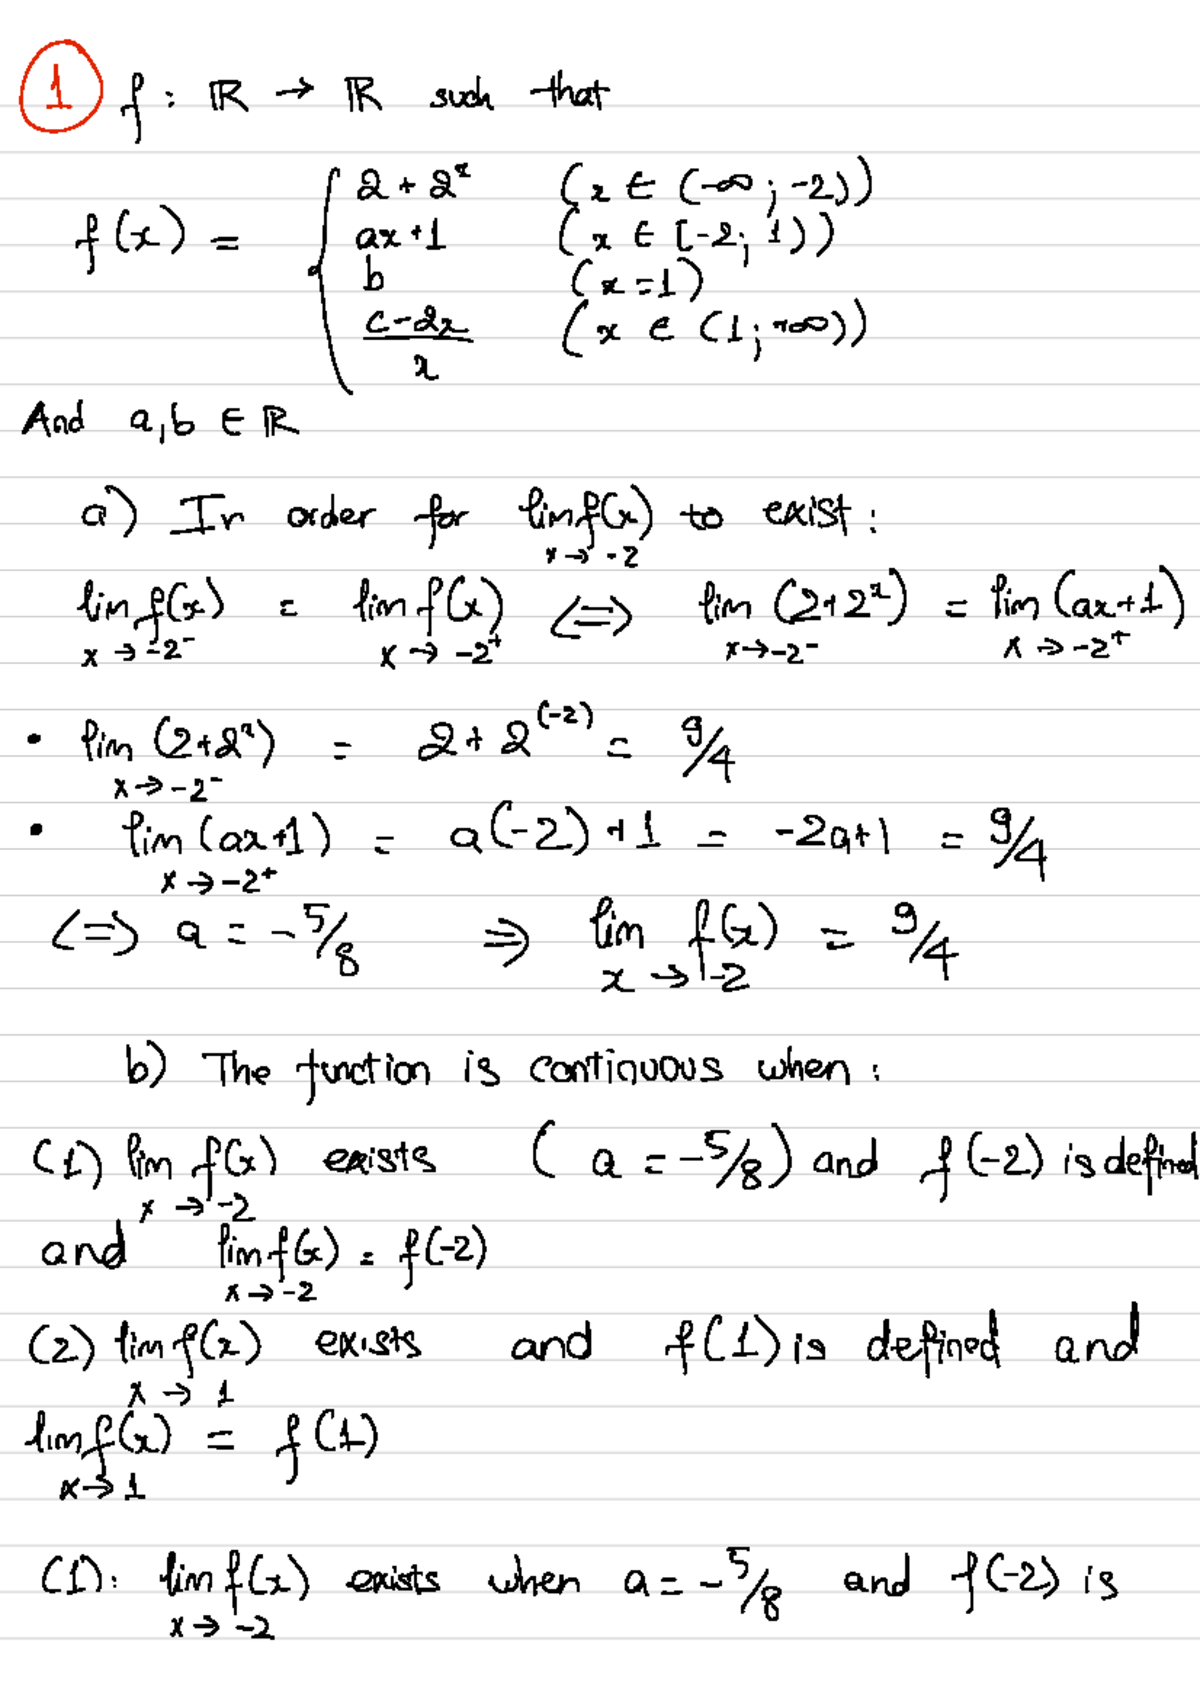 1 f : ℝ → ℝ such that
f(x) = { 2 + 2^x (x ∈ (-∞ ; -2))
ax + 1 (x ∈ [-2 ; 1))
b (x = 1)
(c - 2x)/x (x ∈ (1 ; +∞))
And a, b ∈ ℝ
a) In order for lim f(x) to exist :
x → -2
lim f(x) = lim f(x) <=> lim (2 + 2^x) = lim (ax + 1)
x → -2⁻ x → -2⁺ x → -2⁻ x → -2⁺
• lim (2 + 2^x) = 2 + 2^(-2) = 9/4
x → -2⁻
• lim (ax + 1) = a(-2) + 1 = -2a + 1 = 9/4
x → -2⁺
<=> a = -5/8 => lim f(x) = 9/4
x → -2
b) The function is continuous when :
(1) lim f(x) exists ( a = -5/8) and f(-2) is defined
x → -2
and lim f(x) = f(-2)
x → -2
(2) lim f(x) exists and f(1) is defined and
x → 1
lim f(x) = f(1)
x → 1
(1): lim f(x) exists when a = -5/8 and f(-2) is
x → -2